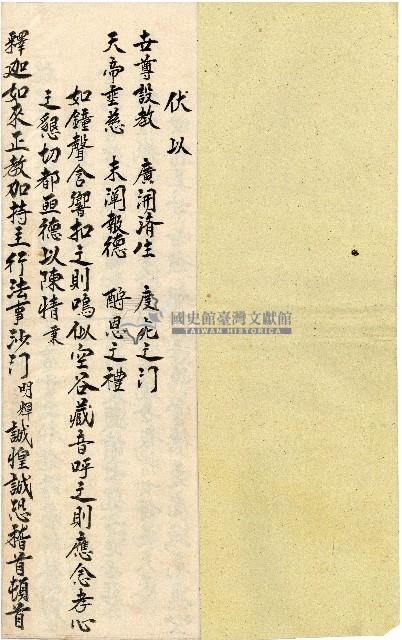 伏以
世尊設教　廣開濟生　度死之门
天帝垂慈　未闡報德　酧恩之禮
如鐘聲含響扣之則鳴似空谷藏音呼之則應念孝心
之懇切都亟德以陳情秉
釋迦如來正教加持主行法事沙门明輝誠惶誠恐稽首頓首
國史館臺灣文獻館
TAIWAN HISTORICA